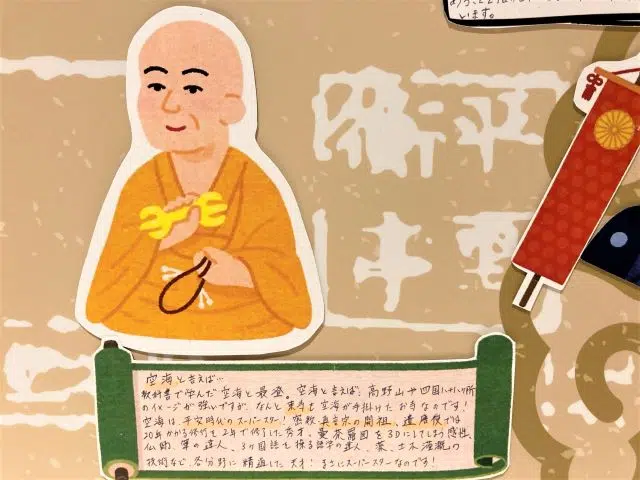 います。
空海と言えば…
教科書で学んだ空海と最澄。空海と言えば、高野山や四国八十八ヶ所
のイメージが強いですが、なんと東寺も空海が手掛けたお寺なのです！
空海は、平安時代のスーパースター！密教・真言宗の開祖、遣唐使では
20年かかる修行を2年で修了した秀才、曼荼羅図を3Dにしてしまう感性、
仏師、筆の達人、3ヶ国語を操る語学の達人、薬、土木灌漑の
技術など、各分野に精通した天才！まさにスーパースターなのです！